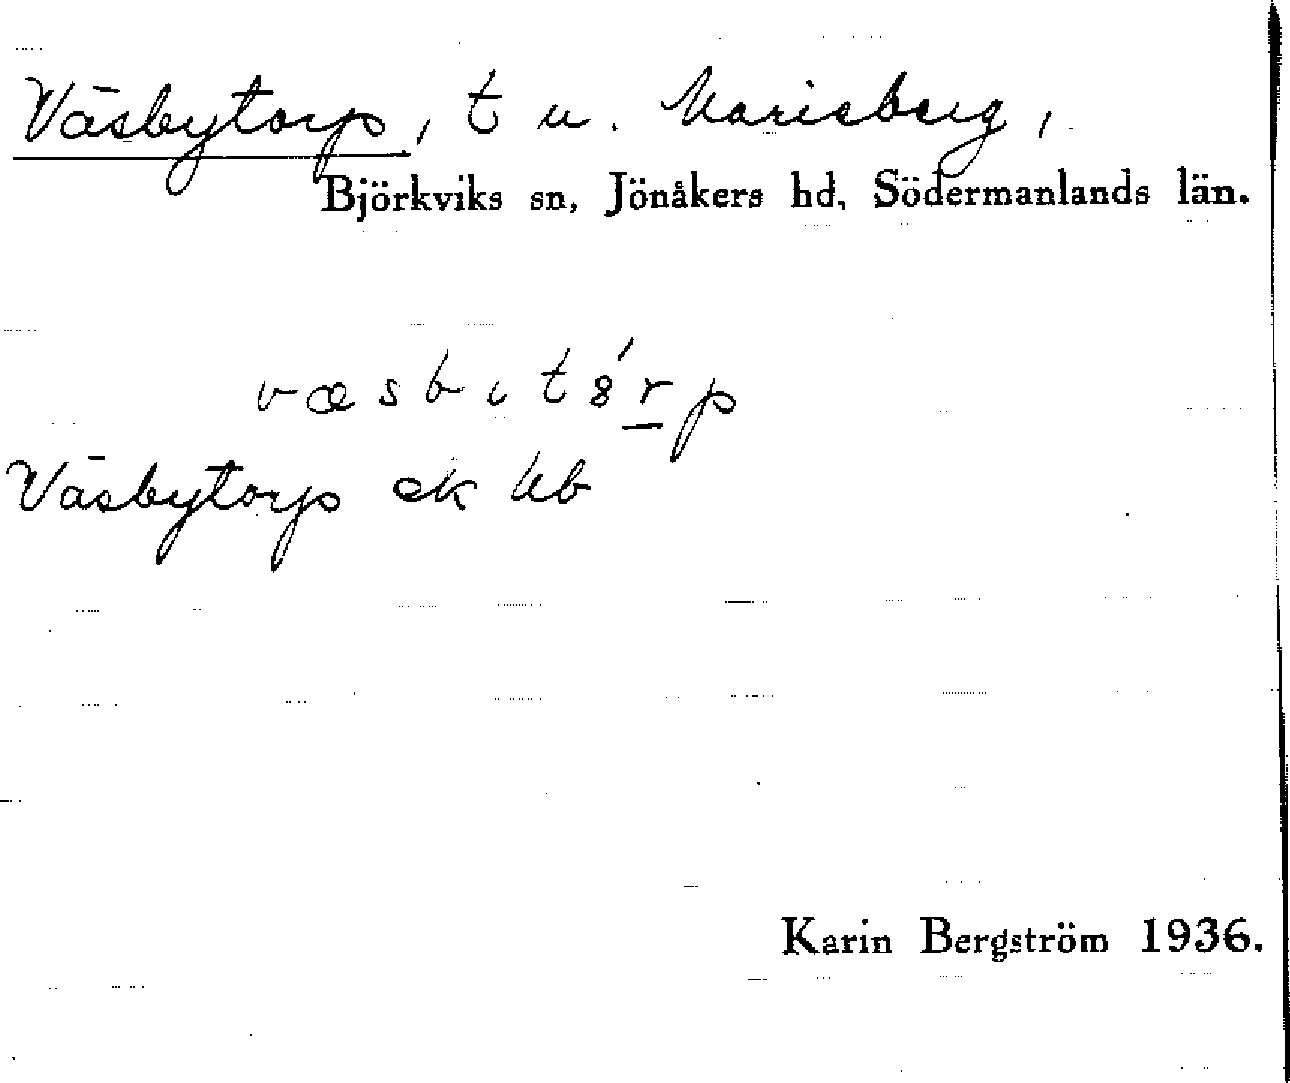 Väsbytorp, t u. Marieberg,
Björkviks sn, Jönåkers hd, Södermanlands län.
væsbıtȣ́r̲p
Väsbytorp ek kb
Karin Bergström 1936.